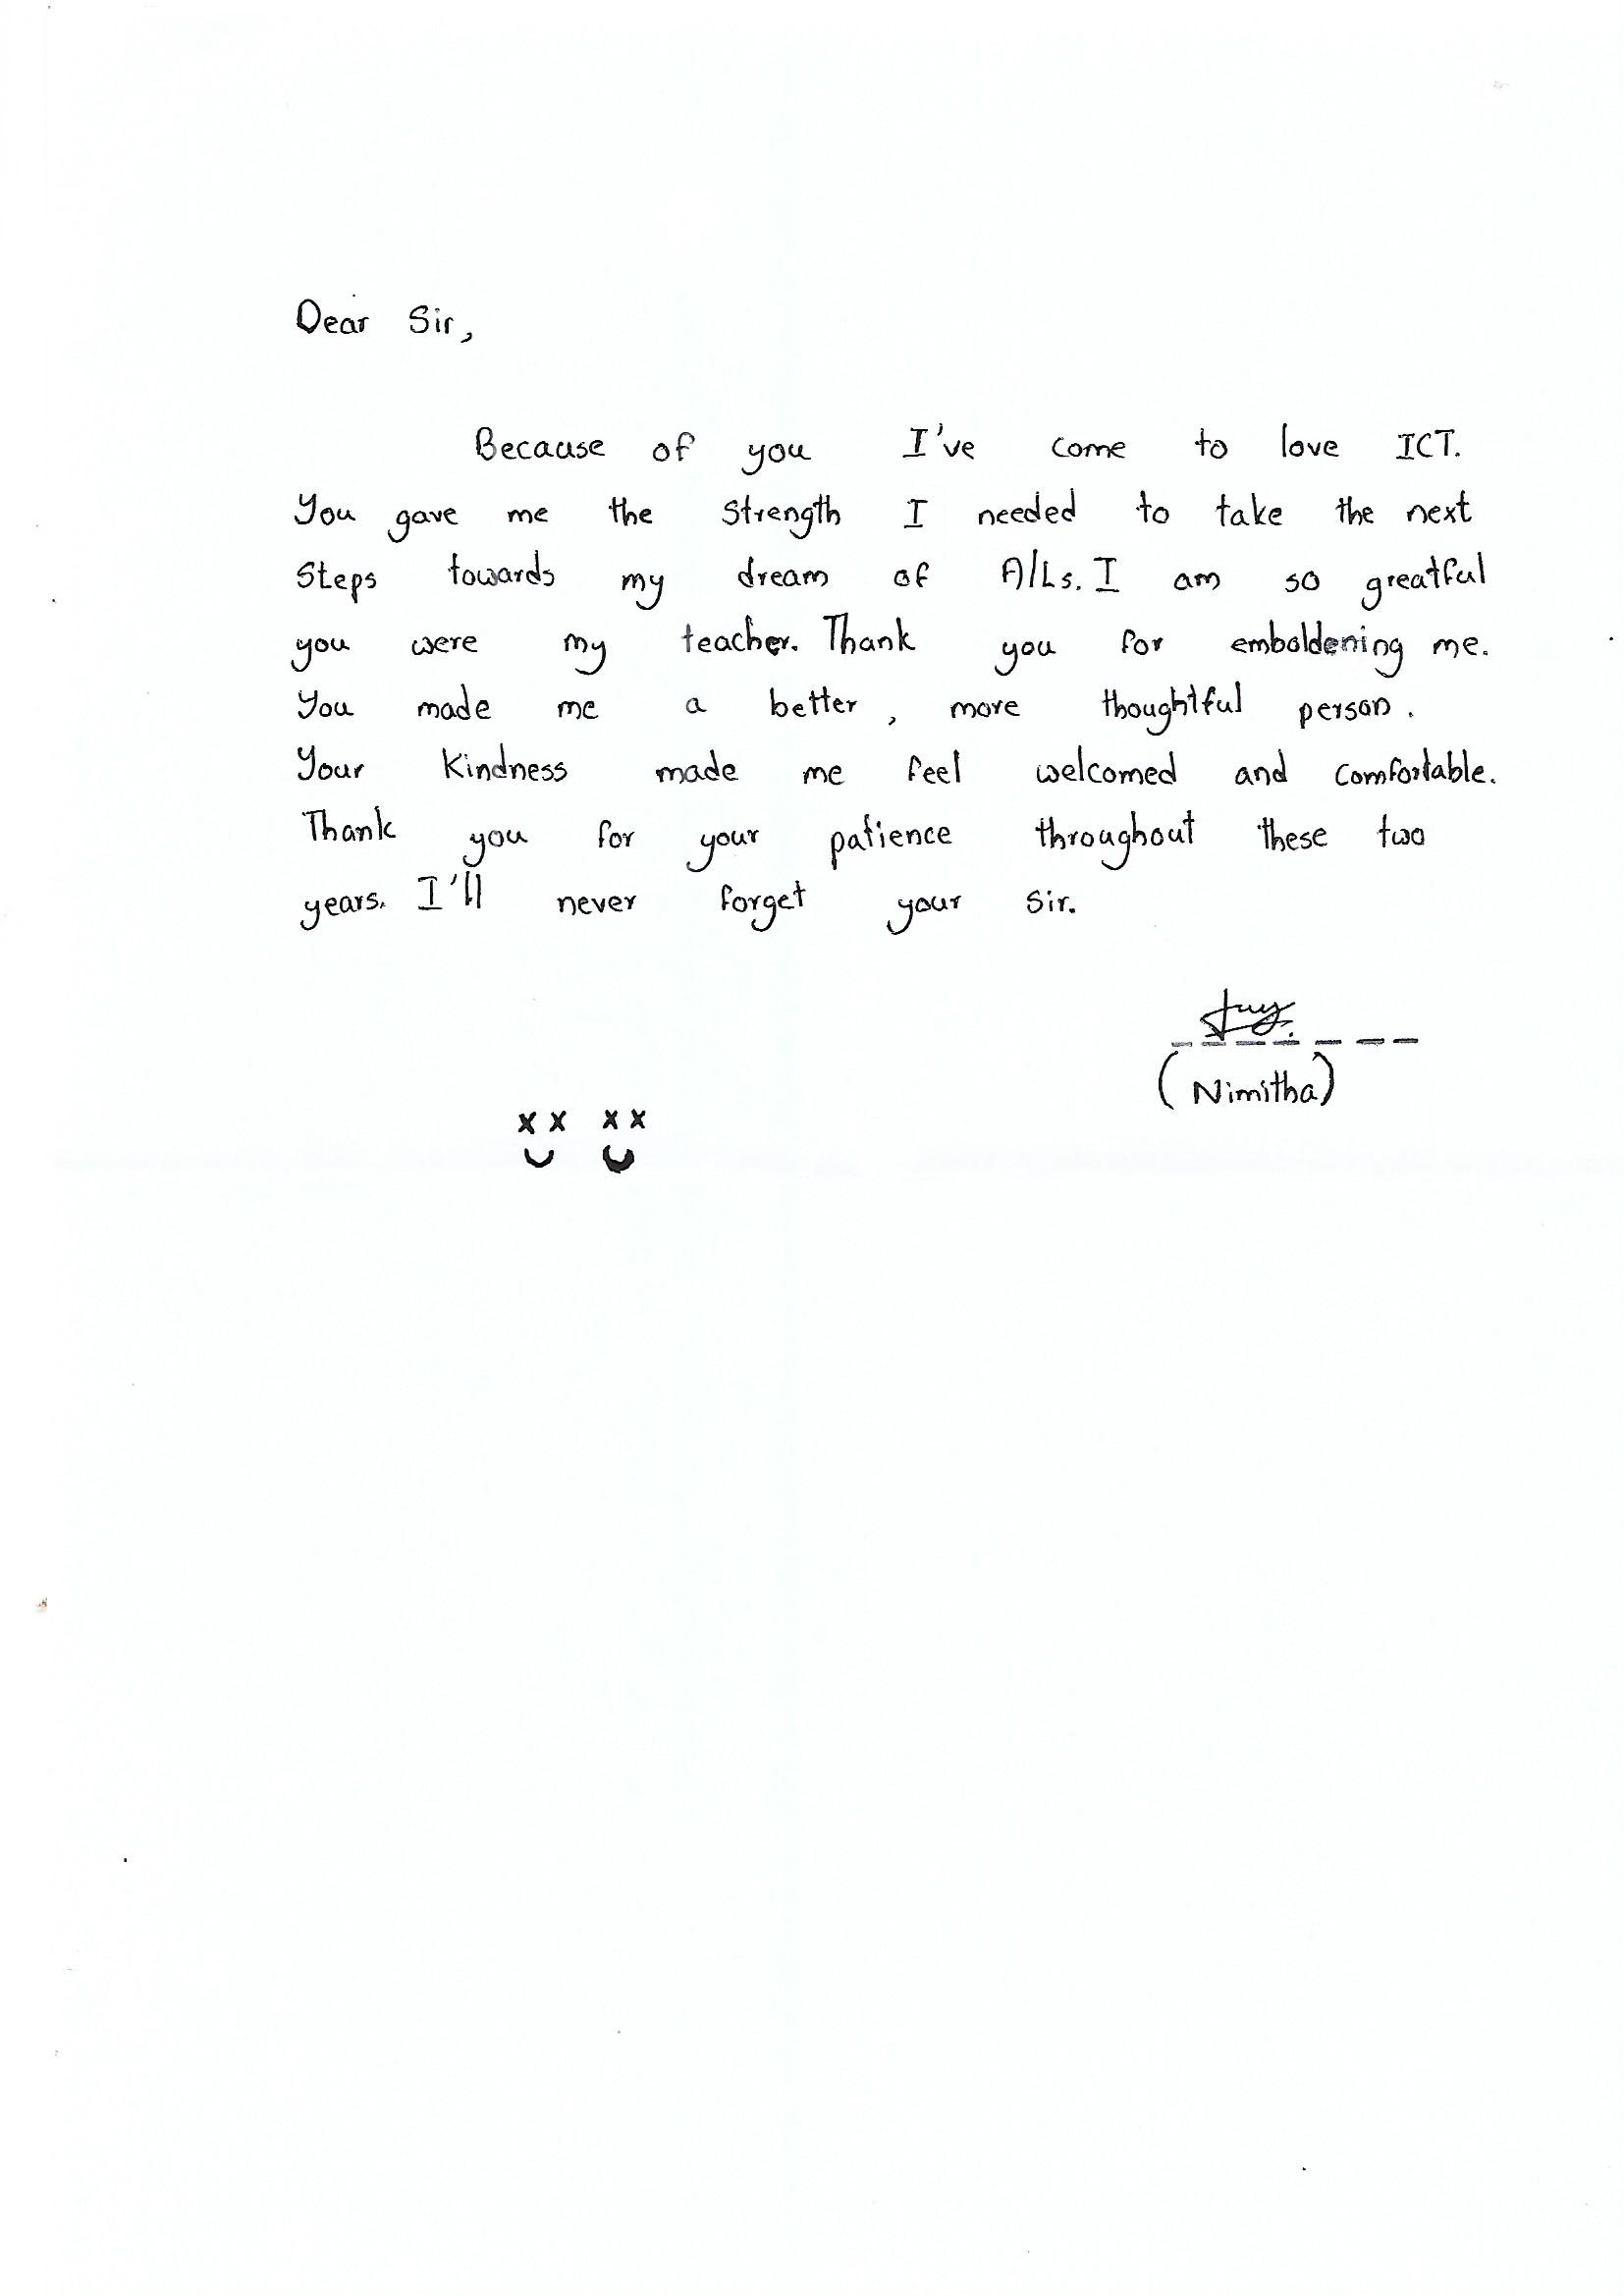 Dear Sir,
Because of you I've come to love ICT.
You gave me the strength I needed to take the next
Steps towards my dream of A/Ls. I am so greatful
you were my teacher. Thank you for emboldening me.
You made me a better, more thoughtful person.
Your Kindness made me feel welcomed and comfortable.
Thank you for your patience throughout these two
years. I'll never forget your sir.
(Nimitha)
x x x x